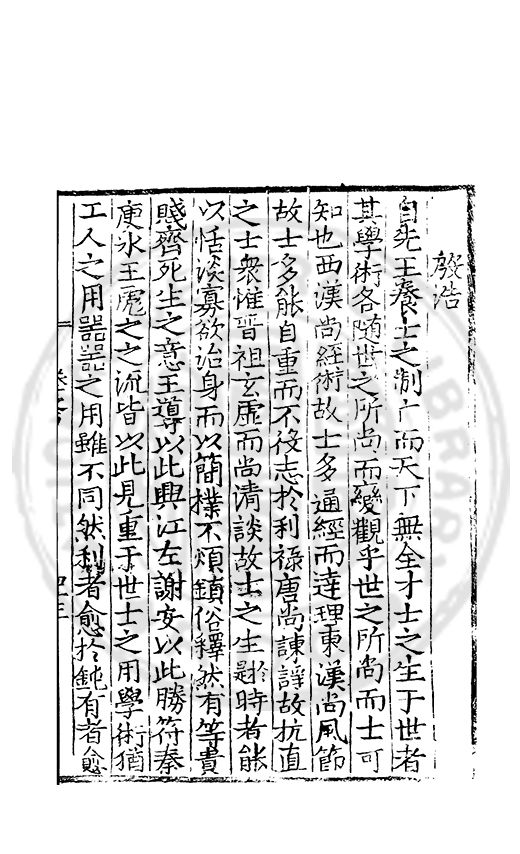 殷浩
自先王養士之制亡而天下無全才士之生于世者
其學術各随世之所尚而變觀乎世之所尚而士可
知也西漢尚經術故士多通經而達理東漢尚風節
故士多能自重而不役志於利祿唐尚諫諍故抗直
之士衆惟晋祖玄虛而尚清談故士之生於是時者能
以恬淡寡欲治身而以簡樸不煩鎮俗釋然有等貴
賤齊死生之意王導以此興江左謝安以此勝符秦
庾冰王彪之之流皆以此見重于世士之用學術猶
工人之用噐噐之用雖不同然利者愈於鈍有者愈